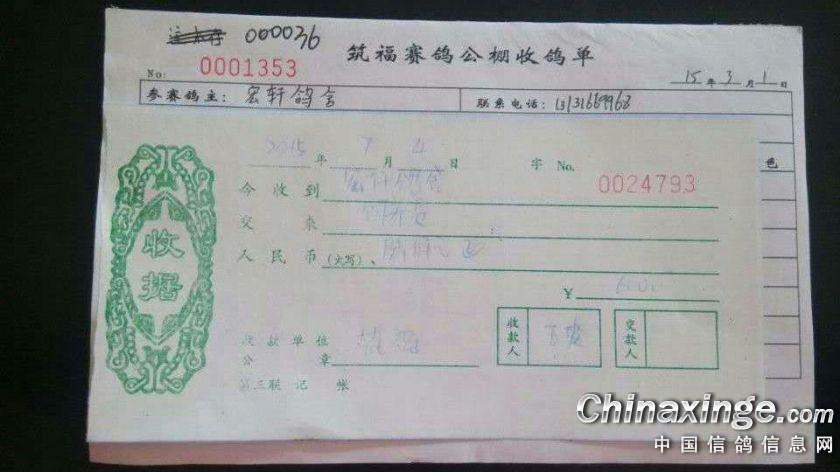 000036
筑福赛鸽公棚收鸽单
No: 0001353
15年3月1日
参赛鸽主: 宏轩鸽舍 联系电话: 13131669968
色
2015年7月4日 字 No. 0024793
今收到
交来
人民币(大写)、
¥
收据
收款单位
公章
收款人
交款人
第三联 记帐
Chinaxinge.com
中国信鸽信息网